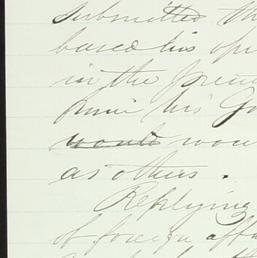 submitted th
based his opi
in the
his Go
would wou
as others.
Replying
of foreign aff